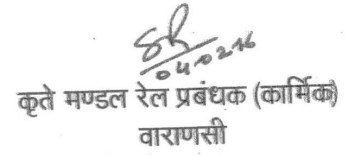 040216
कृते मण्डल रेल प्रबंधक (कार्मिक)
वाराणसी